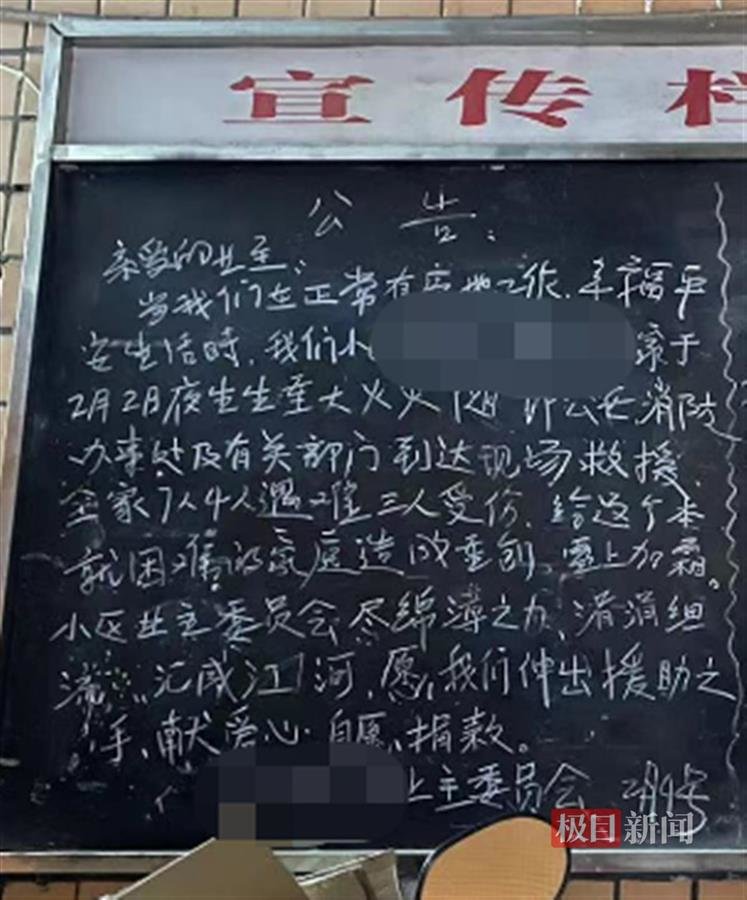 宣传
公告：
亲爱的业主：
当我们在正常有序地工作、幸福平
安生活时，我们小 家于
2月2日夜 大火 公安消防
办事处及有关部门到达现场救援，
全家7人4人遇难三人受伤，给这个本
就困难的家庭造成重创，雪上加霜。
小区业主委员会尽绵薄之力、涓涓细
流，汇成江河，愿我们伸出援助之
手、献爱心自愿捐款。
主委员会
极目新闻